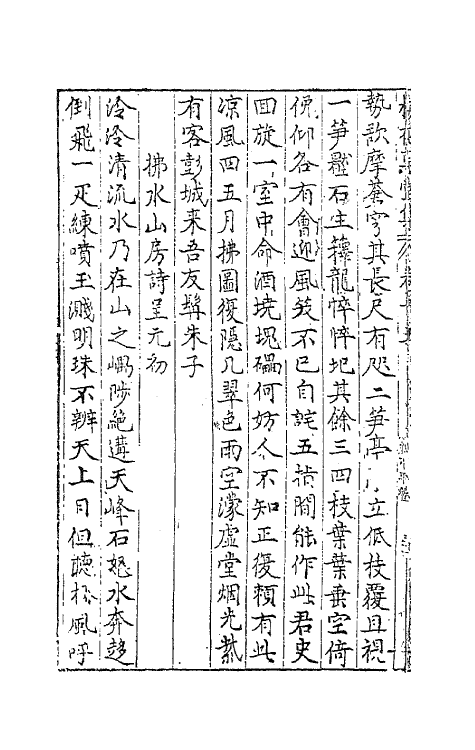 勢欲摩蒼穹其長尺有咫二笋亭亭立低枝覆且視
一笋壓石生籜龍悴悴圯其餘三四枝葉葉垂空倚
俛仰各有會迎風笑不已自詫五指間能作此君史
回旋一室中命酒境塊礧何妨人不知正復賴有此
凉風四五月拂圖復隱几翠色雨空濛虛堂烟光紫
有客彭城來吾友髯朱子
拂水山房詩呈元初
泠泠清流水乃在山之嶰陟絕遘天峰石怒水奔趍
倒飛一疋練噴玉濺明珠不辨天上月但聽松風呼